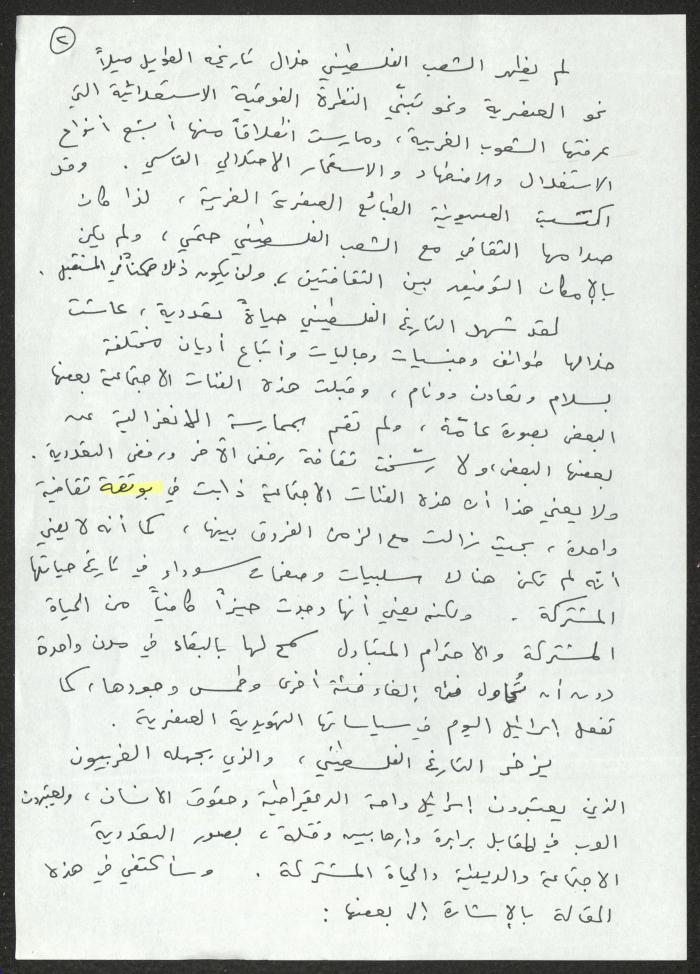 ٢
لم يظهر الشعب الفلسطيني خلال تاريخه الطويل ميلاً
نحو العنصرية ونحو تبنّي النظرة الفوقية الاستعلائية التي
عرفتها الشعوب الغربية، ومارست انطلاقاً منها أبشع أنواع
الاستغلال والاضطهاد والاستعمار الاحتلالي القاسي. وقد
اكتسبت الصهيونية الطبائع العنصرية الغربية، لذا كان
صدامها الثقافي مع الشعب الفلسطيني حتمي، ولم يكن
بالإمكان التوفيق بين الثقافتين، ولن يكون ذلك ممكناً في المستقبل.
لقد شهد التاريخ الفلسطيني حياةً تعددية، عاشت
خلالها طوائف وجنسيات وجاليات وأتباع أديان مختلفة
بسلام وتعاون ووئام، وقبلت هذه الفئات الاجتماعية بعضها
البعض بصورة عامّة، ولم تقم بممارسة الانعزالية عن
بعضها البعض، ولا رسّخت ثقافة رفض الآخر ورفض التعددية.
ولا يعني هذا أن هذه الفئات الاجتماعية ذابت في بوتقة ثقافية
واحدة، بحيث زالت مع الزمن الفروق بينها، كما أنه لا يعني
أنه لم تكن هناك سلبيات وصفحات سوداء في تاريخ حياتها
المشتركة. ولكنه يعني أنها وجدت حيزاً كافياً من الحياة
المشتركة والاحترام المتبادل سمح لها بالبقاء في مدن واحدة
دون أن تُحاول فئة إلغاء فئة أخرى وطمس وجودها، كما
تفعل إسرائيل اليوم في سياساتها التهويدية العنصرية.
يزخر التاريخ الفلسطيني، والذي يجهله الغربيون
الذين يعتبرون إسرائيل واحة الديمقراطية وحقوق الانسان، ويعتبرون
العرب في المقابل برابرة وإرهابيين وقتلة، بصور التعددية
الاجتماعية والدينية والحياة المشتركة. وسأكتفي في هذه
المقالة بالإشارة إلى بعضها: